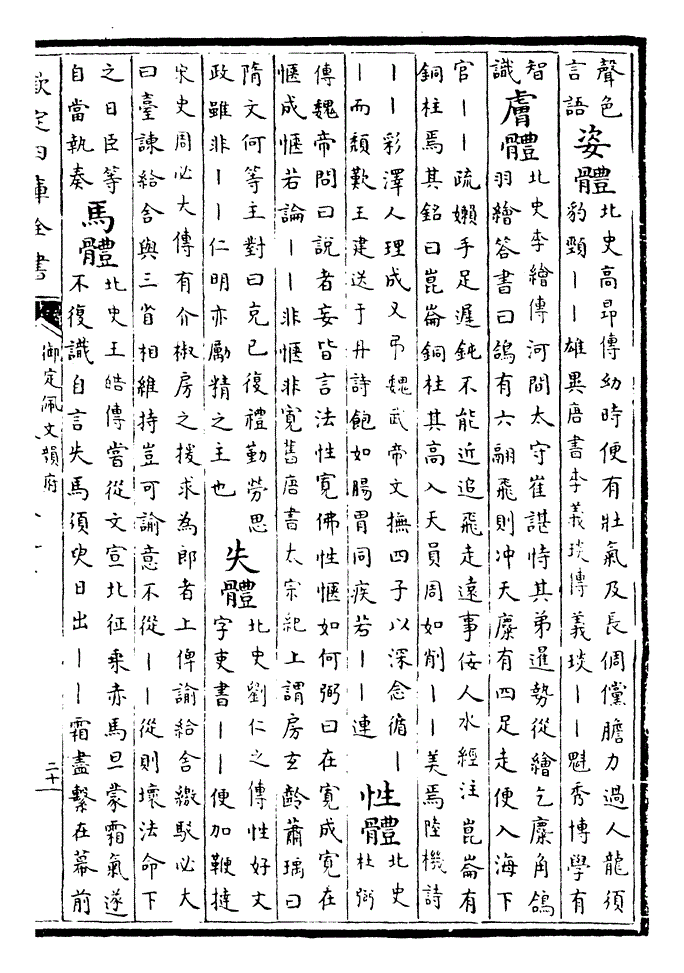 聲色
言語
姿體
北史高昂傳幼時便有壯氣及長倜儻膽力過人龍須
豹頸——雄異唐書李義琰傳義琰——魁秀博學有
智
識
膚體
北史李繪傳河間太守崔諶恃其弟暹勢從繪乞麋角鴿
羽繪答書曰鴿有六翮飛則冲天麋有四足走便入海下
官——疏嬾手足遲鈍不能近追飛走遠事佞人水經注崑崙有
銅柱焉其銘曰崑崙銅柱其高入天員周如削——美焉陸機詩
——彩澤人理成又弔魏武帝文撫四子以深念循—
—而頹歎王建送于丹詩飽如腸胃同疾若——連
性體
北史
杜弼
傳魏帝問曰說者妄皆言法性寛佛性愜如何弼曰在寛成寛在
愜成愜若論——非愜非寛舊唐書太宗紀上謂房玄齡蕭瑀曰
隋文何等主對曰克已復禮勤勞思
政雖非——仁明亦勵精之主也
失體
北史劉仁之傳性好文
字吏書——便加鞭撻
宋史周必大傳有介椒房之援求為郎者上俾諭給舍繳駁必大
曰臺諫給舍與三省相維持豈可諭意不從——從則壞法命下
之日臣等
自當執奏
馬體
北史王皓傳嘗從文宣北征乘赤馬旦蒙霜氣遂
不復識自言失馬須臾日出——霜盡繫在幕前
欽定四庫全書
御定佩文韻府
二十一